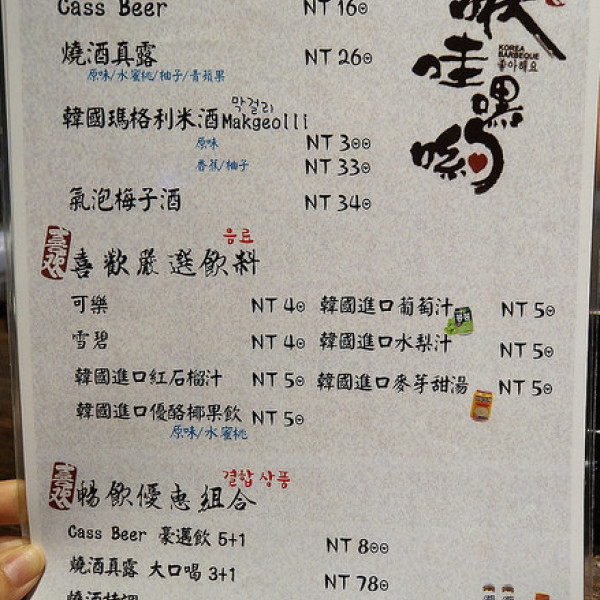 Cass Beer NT 160
燒酒真露 NT 260
原味/水蜜桃/柚子/青蘋果
막걸리
韓國瑪格利米酒Makgeolli
原味 NT 300
香蕉/柚子 NT 330
氣泡梅子酒 NT 340
哇嘿喲
KOREA
BARBEQUE
좋아해요
음료
喜歡嚴選飲料
可樂 NT 40 韓國進口葡萄汁 NT 50
雪碧 NT 40 韓國進口水梨汁 NT 50
韓國進口紅石榴汁 NT 50 韓國進口麥芽甜湯 NT 50
韓國進口優酪椰果飲 NT 50
原味/水蜜桃
결합 상품
暢飲優惠組合
Cass Beer 豪邁飲 5+1 NT 800
燒酒真露 大口喝 3+1 NT 780